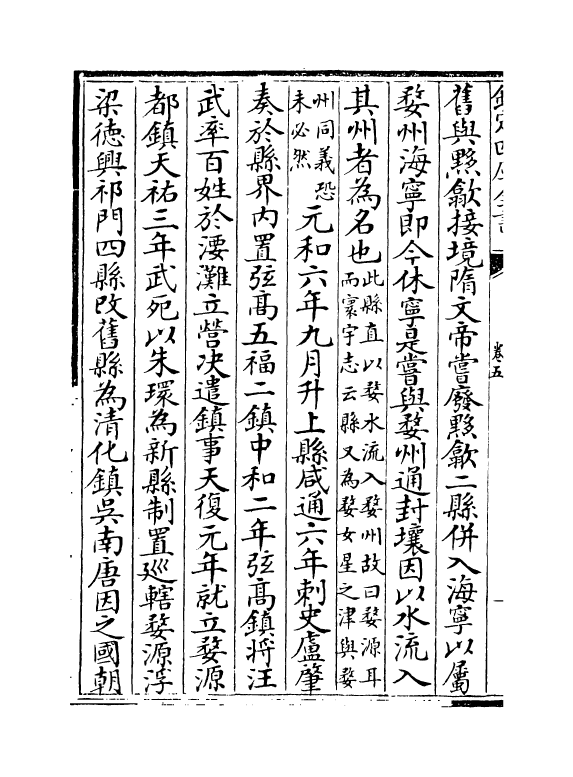 欽定四庫全書
卷五
舊與黟歙接境隋文帝嘗廢黟歙二縣併入海寧以屬
婺州海寧即今休寧是嘗與婺州通封壤因以水流入
其州者為名也此縣直以婺水流入婺州故曰婺源耳
而寰宇志云縣又為婺女星之津與婺
州同義恐
未必然
元和六年九月升上縣咸通六年刺史盧肇
奏於縣界内置弦髙五福二鎮中和二年弦髙鎮將汪
武率百姓於灘立營决遣鎮事天復元年就立婺源
都鎮天祐三年武死以朱環為新縣制置廵轄婺源浮
梁徳興祁門四縣改舊縣為清化鎮吳南唐因之國朝